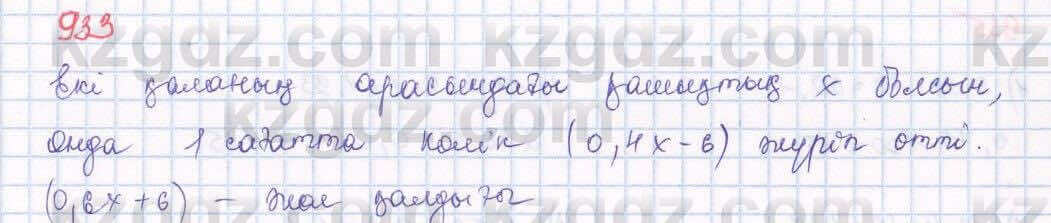 933
kzgdz.com kzgdz.com kzgdz.com
Екі қаланың арасындағы қашықтық x болсын,
kzgdz.com
онда 1 сағатта көлік (0,4x-6) жүріп өтті.
(0,6x+6) - жол қалдығы